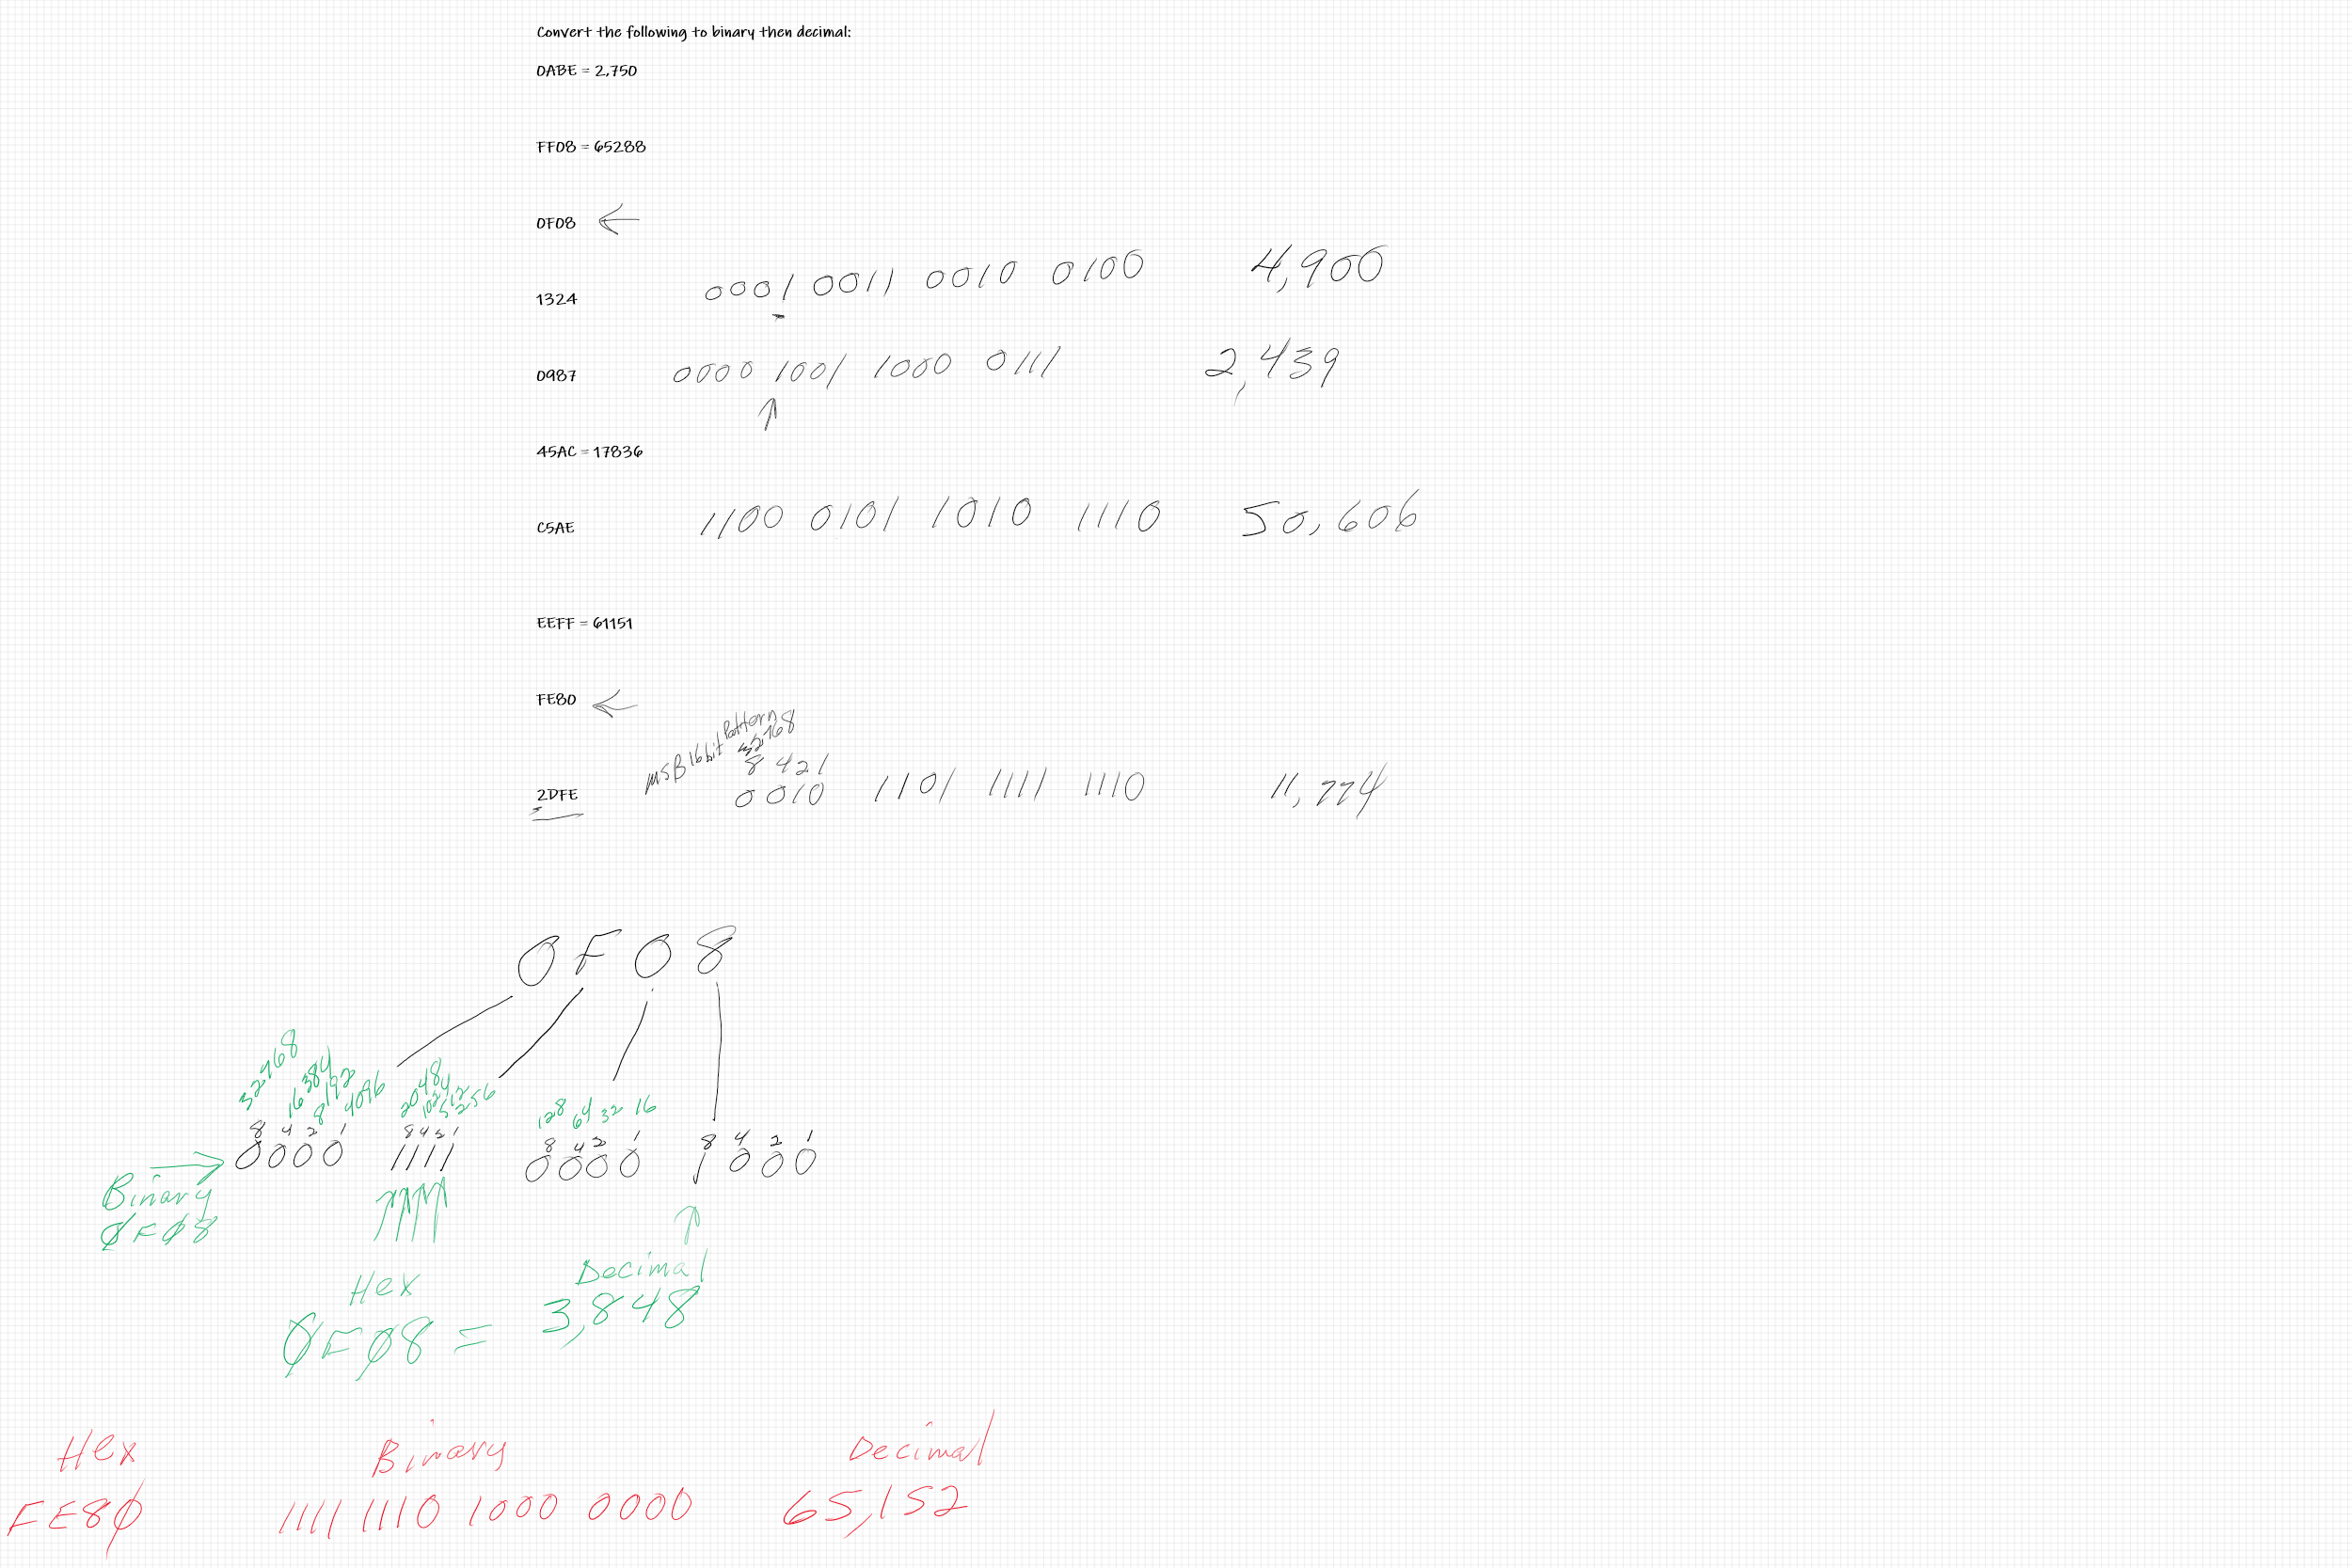 Convert the following to binary then decimal:
0ABE = 2,750
FF08 = 65288
0F08 ←
1324 0001 0011 0010 0100 4,900
0987 0000 1001 1000 0111 2,439
45AC = 17836
C5AE 1100 0101 1010 1110 50,606
EEFF = 61151
FE80 ←
MSB 16bit Pattern
32768
8 4 2 1
2DFE 0010 1101 1111 1110 11,774
0F08
32768 16384 8192 4096 2048 1024 512 256 128 64 32 16
8 4 2 1 8 4 2 1 8 4 2 1 8 4 2 1
0000 1111 0000 1000
Binary
0F08
Hex Decimal
0F08 = 3,848
Hex Binary Decimal
FE80 1111 1110 1000 0000 65,152